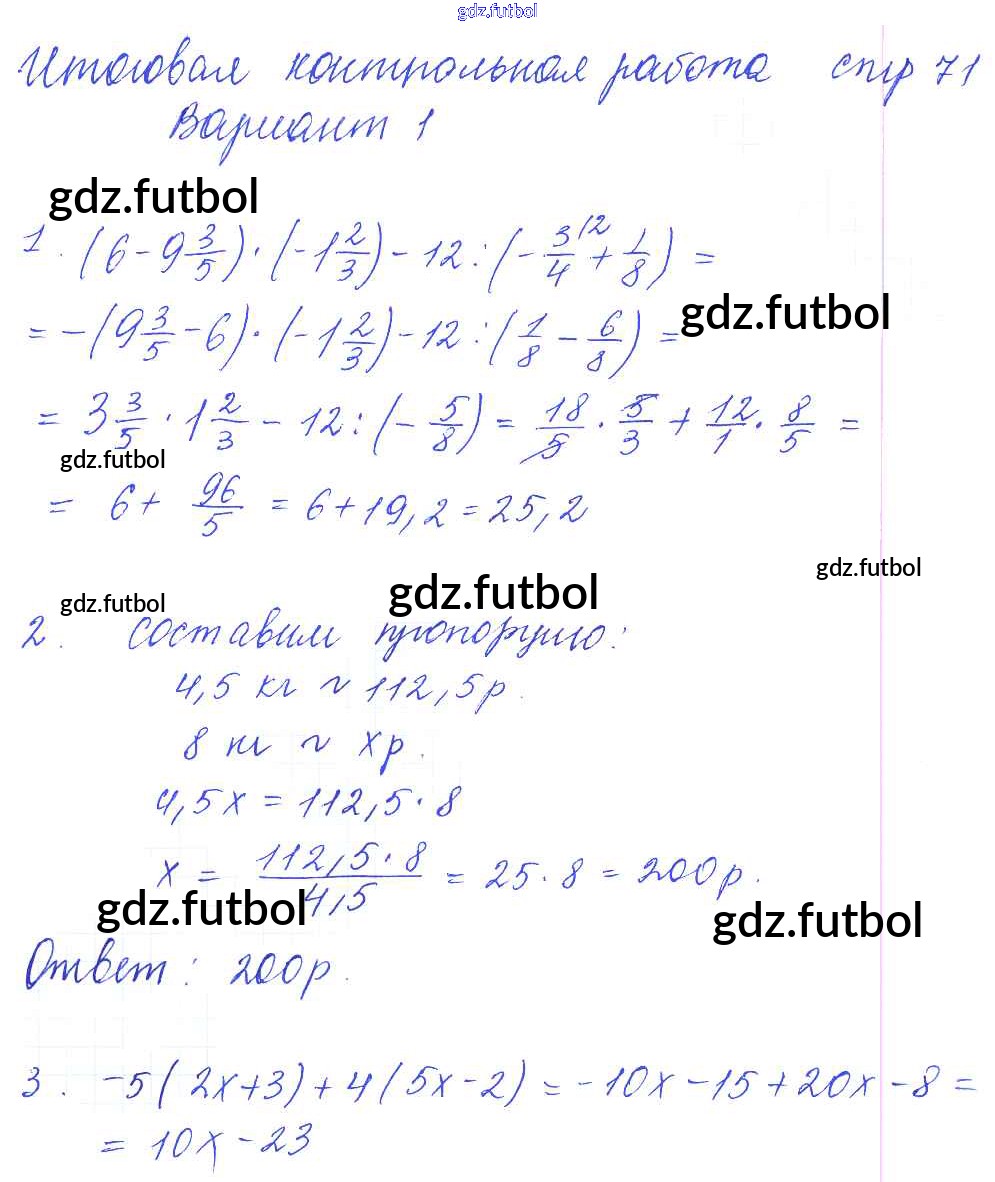 gdz.futbol
Итоговая контрольная работа стр 71
Вариант 1
gdz.futbol
1. (6 - 9 3/5) · (-1 2/3) - 12 : (-3/4 \2 + 1/8) =
gdz.futbol
= -(9 3/5 - 6) · (-1 2/3) - 12 : (1/8 - 6/8) =
= 3 3/5 · 1 2/3 - 12 : (-5/8) = 18/5 · 5/3 + 12/1 · 8/5 =
gdz.futbol
= 6 + 96/5 = 6 + 19,2 = 25,2
gdz.futbol
gdz.futbol
gdz.futbol
2. составим пропорцию:
4,5 кг ~ 112,5 р.
8 кг ~ х р.
4,5х = 112,5 · 8
х = 112,5 · 8/4,5 = 25 · 8 = 200 р.
gdz.futbol
gdz.futbol
Ответ: 200 р.
3. -5(2х+3)+4(5х-2) = -10х - 15 + 20х - 8 =
= 10х - 23